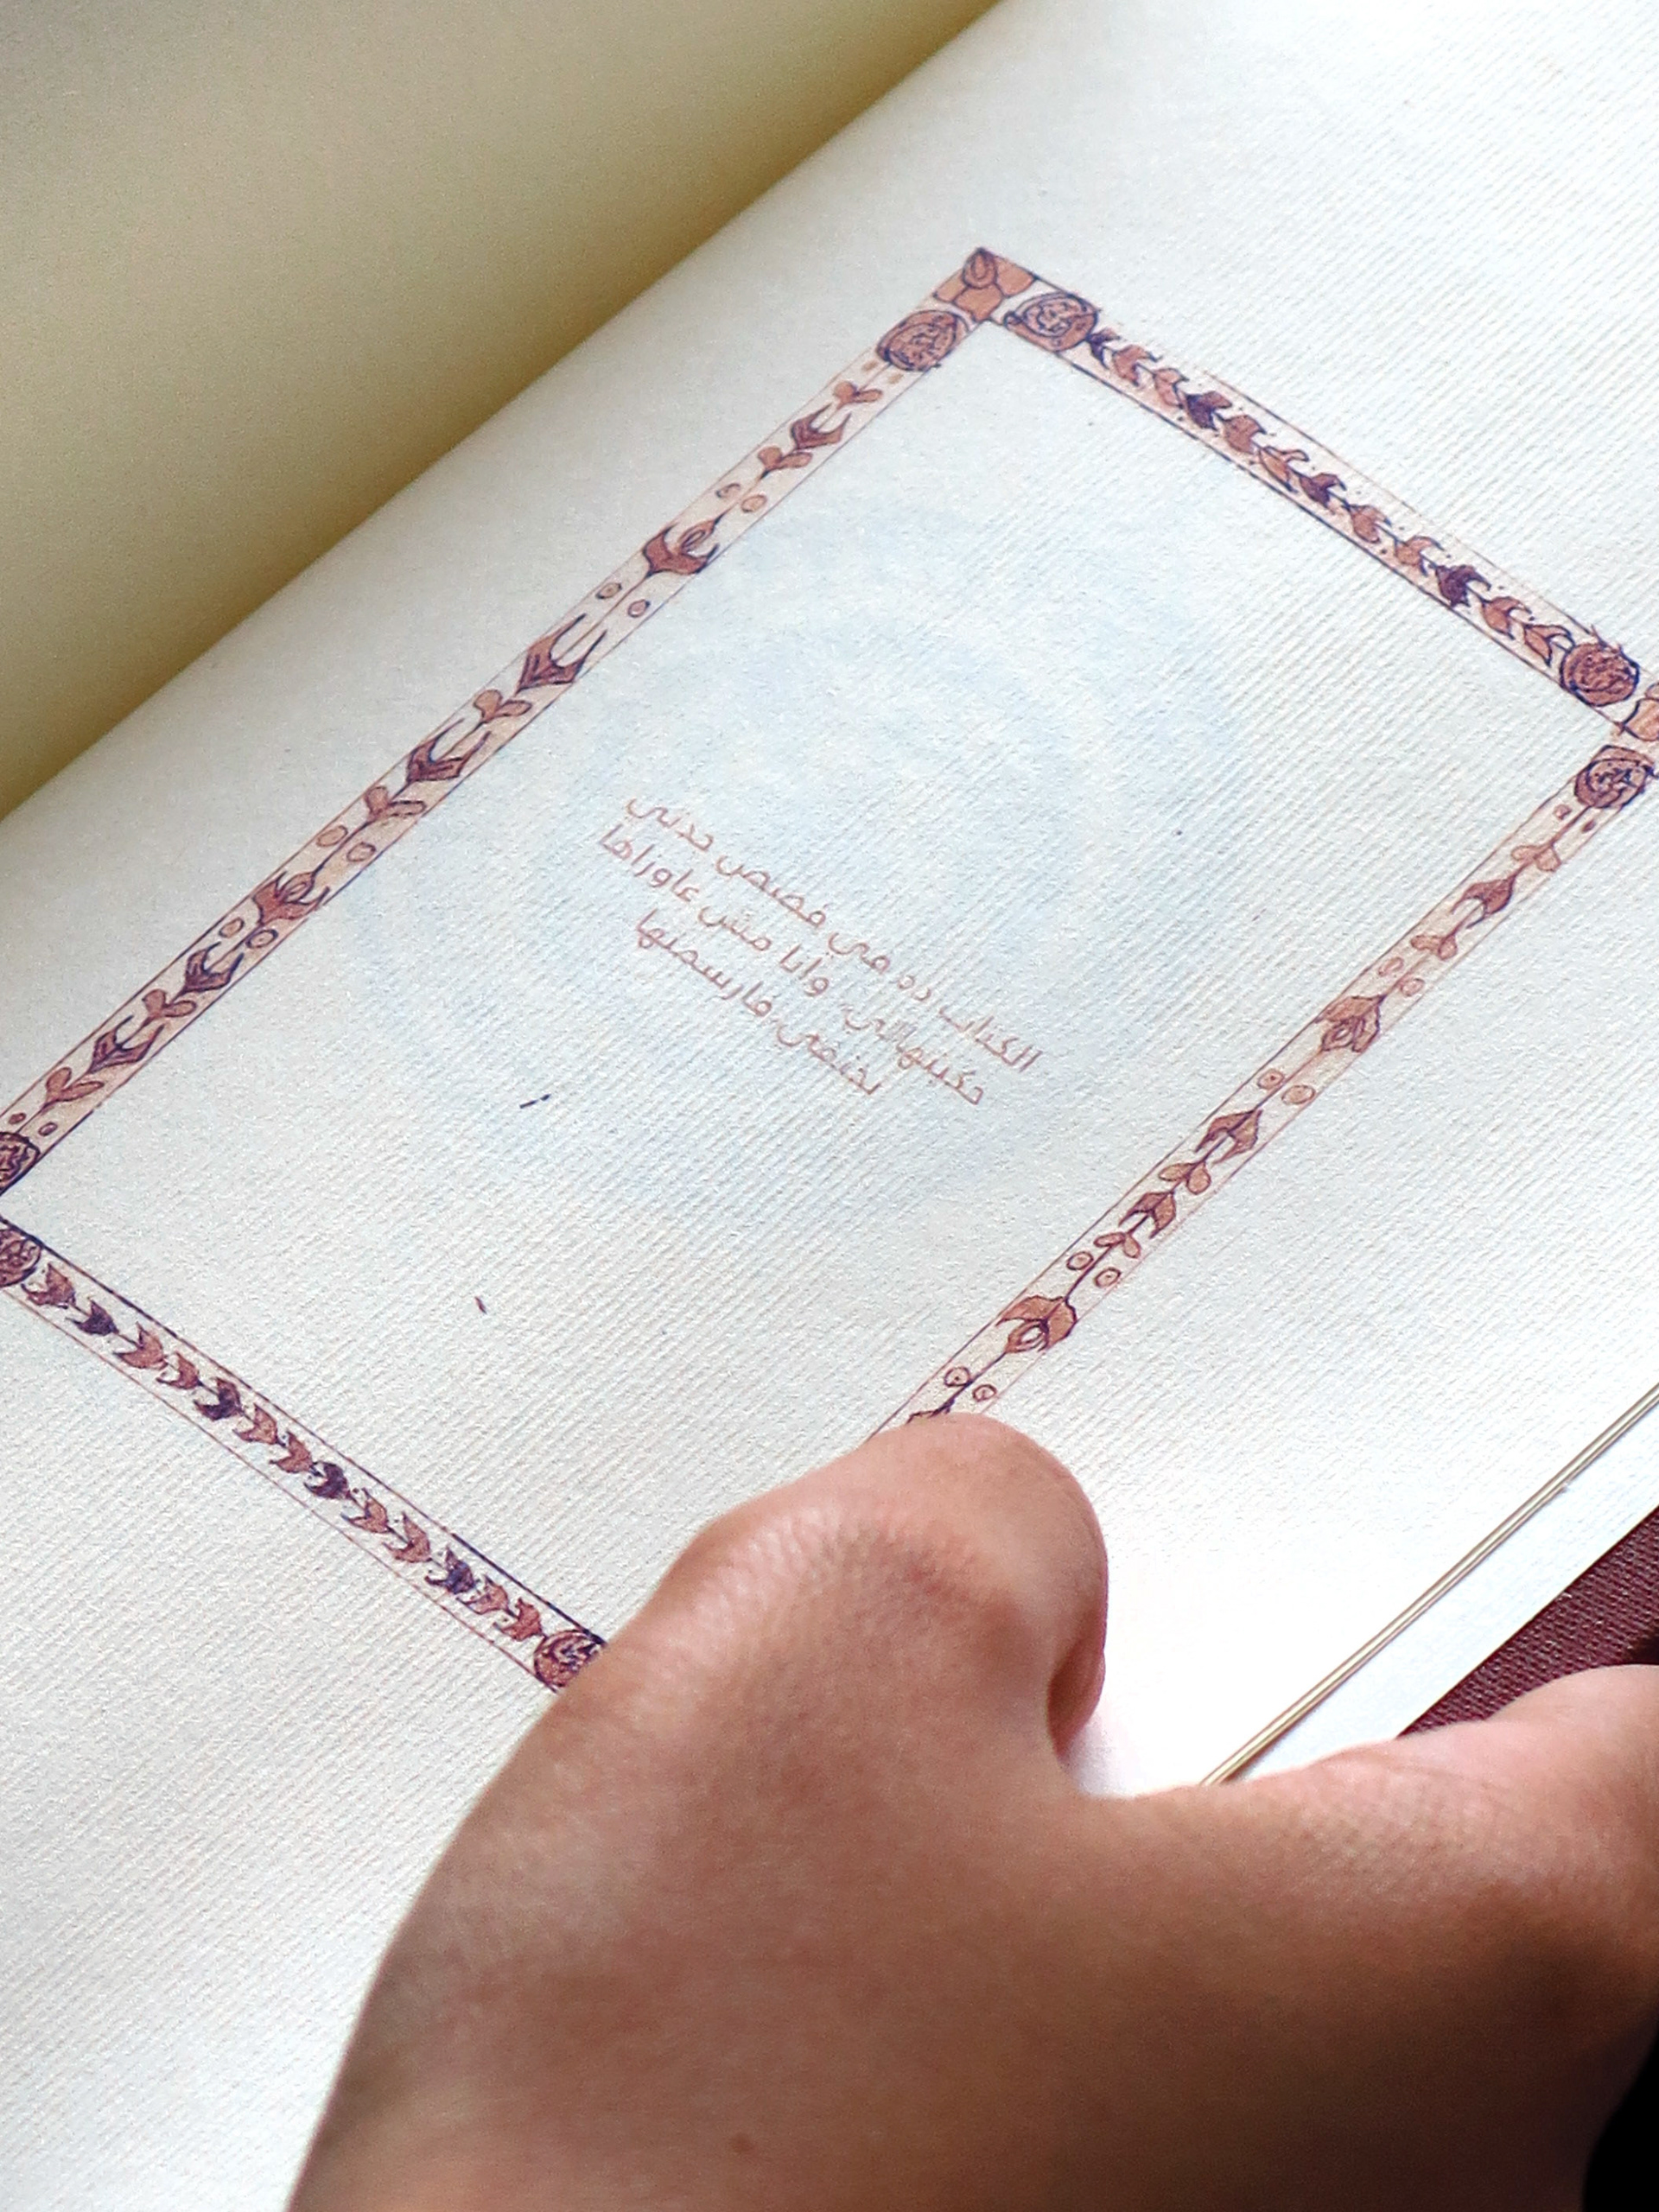 الكتاب ده فيى قصص جدتي
حكيتهالي، وانا مش عاوراها
يختفي، فارسمتها